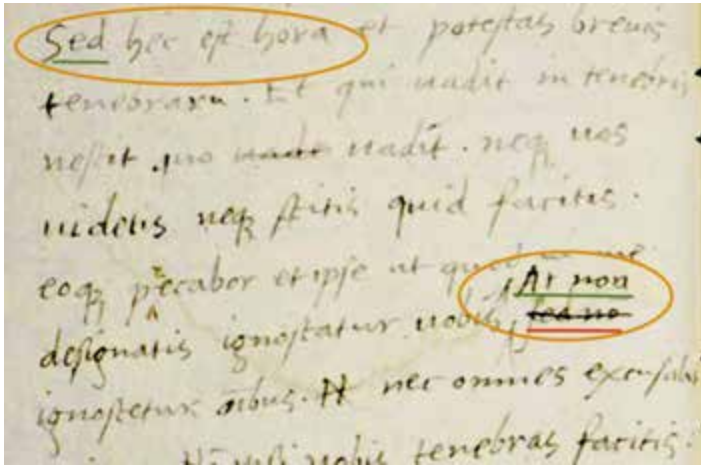 Sed hec est hora et potestas brevis
tenebraru. Et qui uadit in tenebris
nescit quo uadit uadit. neq uos
uidetis neq scitis quid facitis.
eoq precabor et ipse ut
At non
designatis ignoscatur uobis sed no
ignoscetur oibus. nec omnes
nobis tenebras facitis.